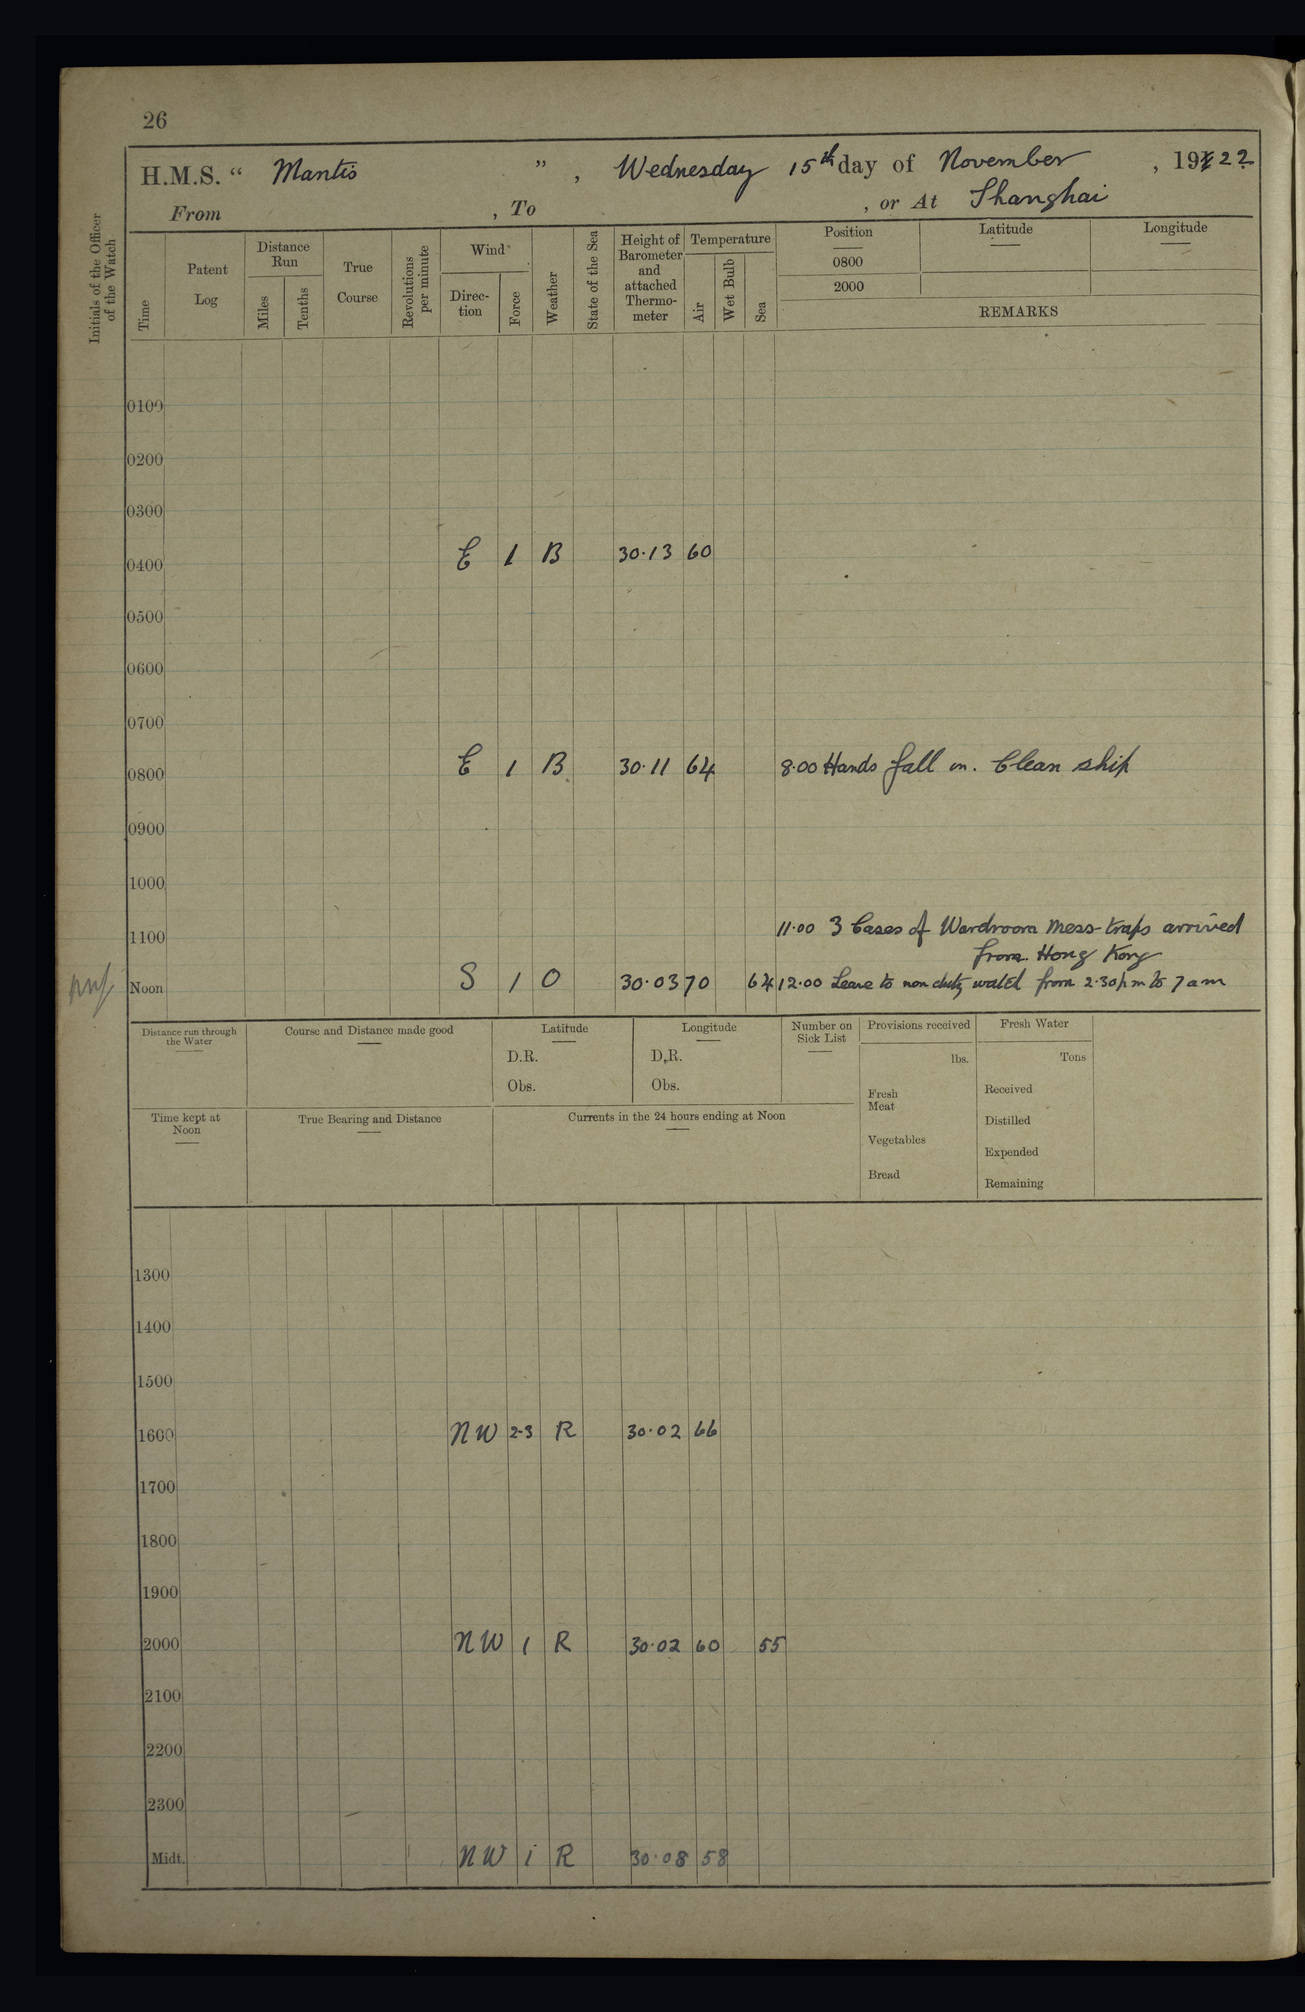 26
H.M.S. " Mantis ", Wednesday 15th day of November, 1922
From , To , or At Shanghai
Initials of the Officer of the Watch
Time
Patent Log
Distance Run
Miles
Tenths
True Course
Revolutions per minute
Wind
Direc-tion
Force
Weather
State of the Sea
Height of Barometer and attached Thermo-meter
Temperature
Air
Wet Bulb
Sea
Position
0800
2000
Latitude
Longitude
REMARKS
0100
0200
0300
0400 E 1 B 30.13 60
0500
0600
0700
0800 E 1 B 30.11 64 8.00 Hands fall in. Clean ship
0900
1000
1100 11.00 3 Cases of Wardroom Mess-traps arrived
from Hong Kong
Noon S 1 O 30.03 70 64 12.00 Leave to non duty watch from 2.30 pm to 7 am
Distance run through the Water
Course and Distance made good
Latitude
D.R.
Obs.
Longitude
D.R.
Obs.
Number on Sick List
Provisions received
lbs.
Fresh Meat
Vegetables
Bread
Fresh Water
Tons
Received
Distilled
Expended
Remaining
Time kept at Noon
True Bearing and Distance
Currents in the 24 hours ending at Noon
1300
1400
1500
1600 NW 2-3 R 30.02 66
1700
1800
1900
2000 NW 1 R 30.02 60 55
2100
2200
2300
Midt. NW 1 R 30.08 58